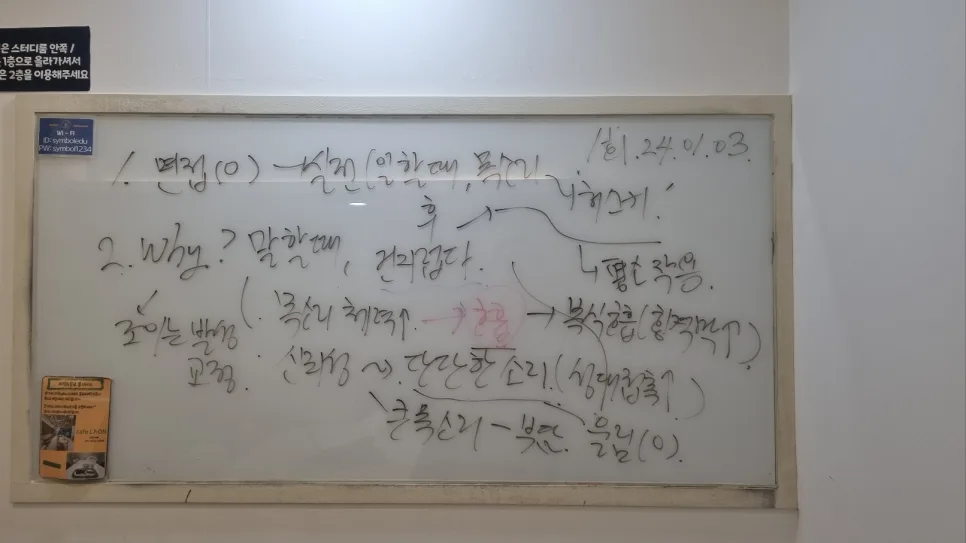 은 스터디룸 안쪽 /
1층으로 올라가셔서
은 2층을 이용해주세요
WI-FI
ID:symboledu
PW:symbol1234
1회. 24. 01. 03.
1. 면접(0) → 실전(일할 때, 목소리
후
2. Why? 말할 때, 간지럽다.
↳ 평소 작용.
목소리 체력↑. → 호흡 → 복식호흡(횡격막↑)
조이는 발성
교정.
신뢰성 ~). 단단한 소리. (성대접촉↑)
큰 목소리 - 부담. 울림(0).
cafe LAON